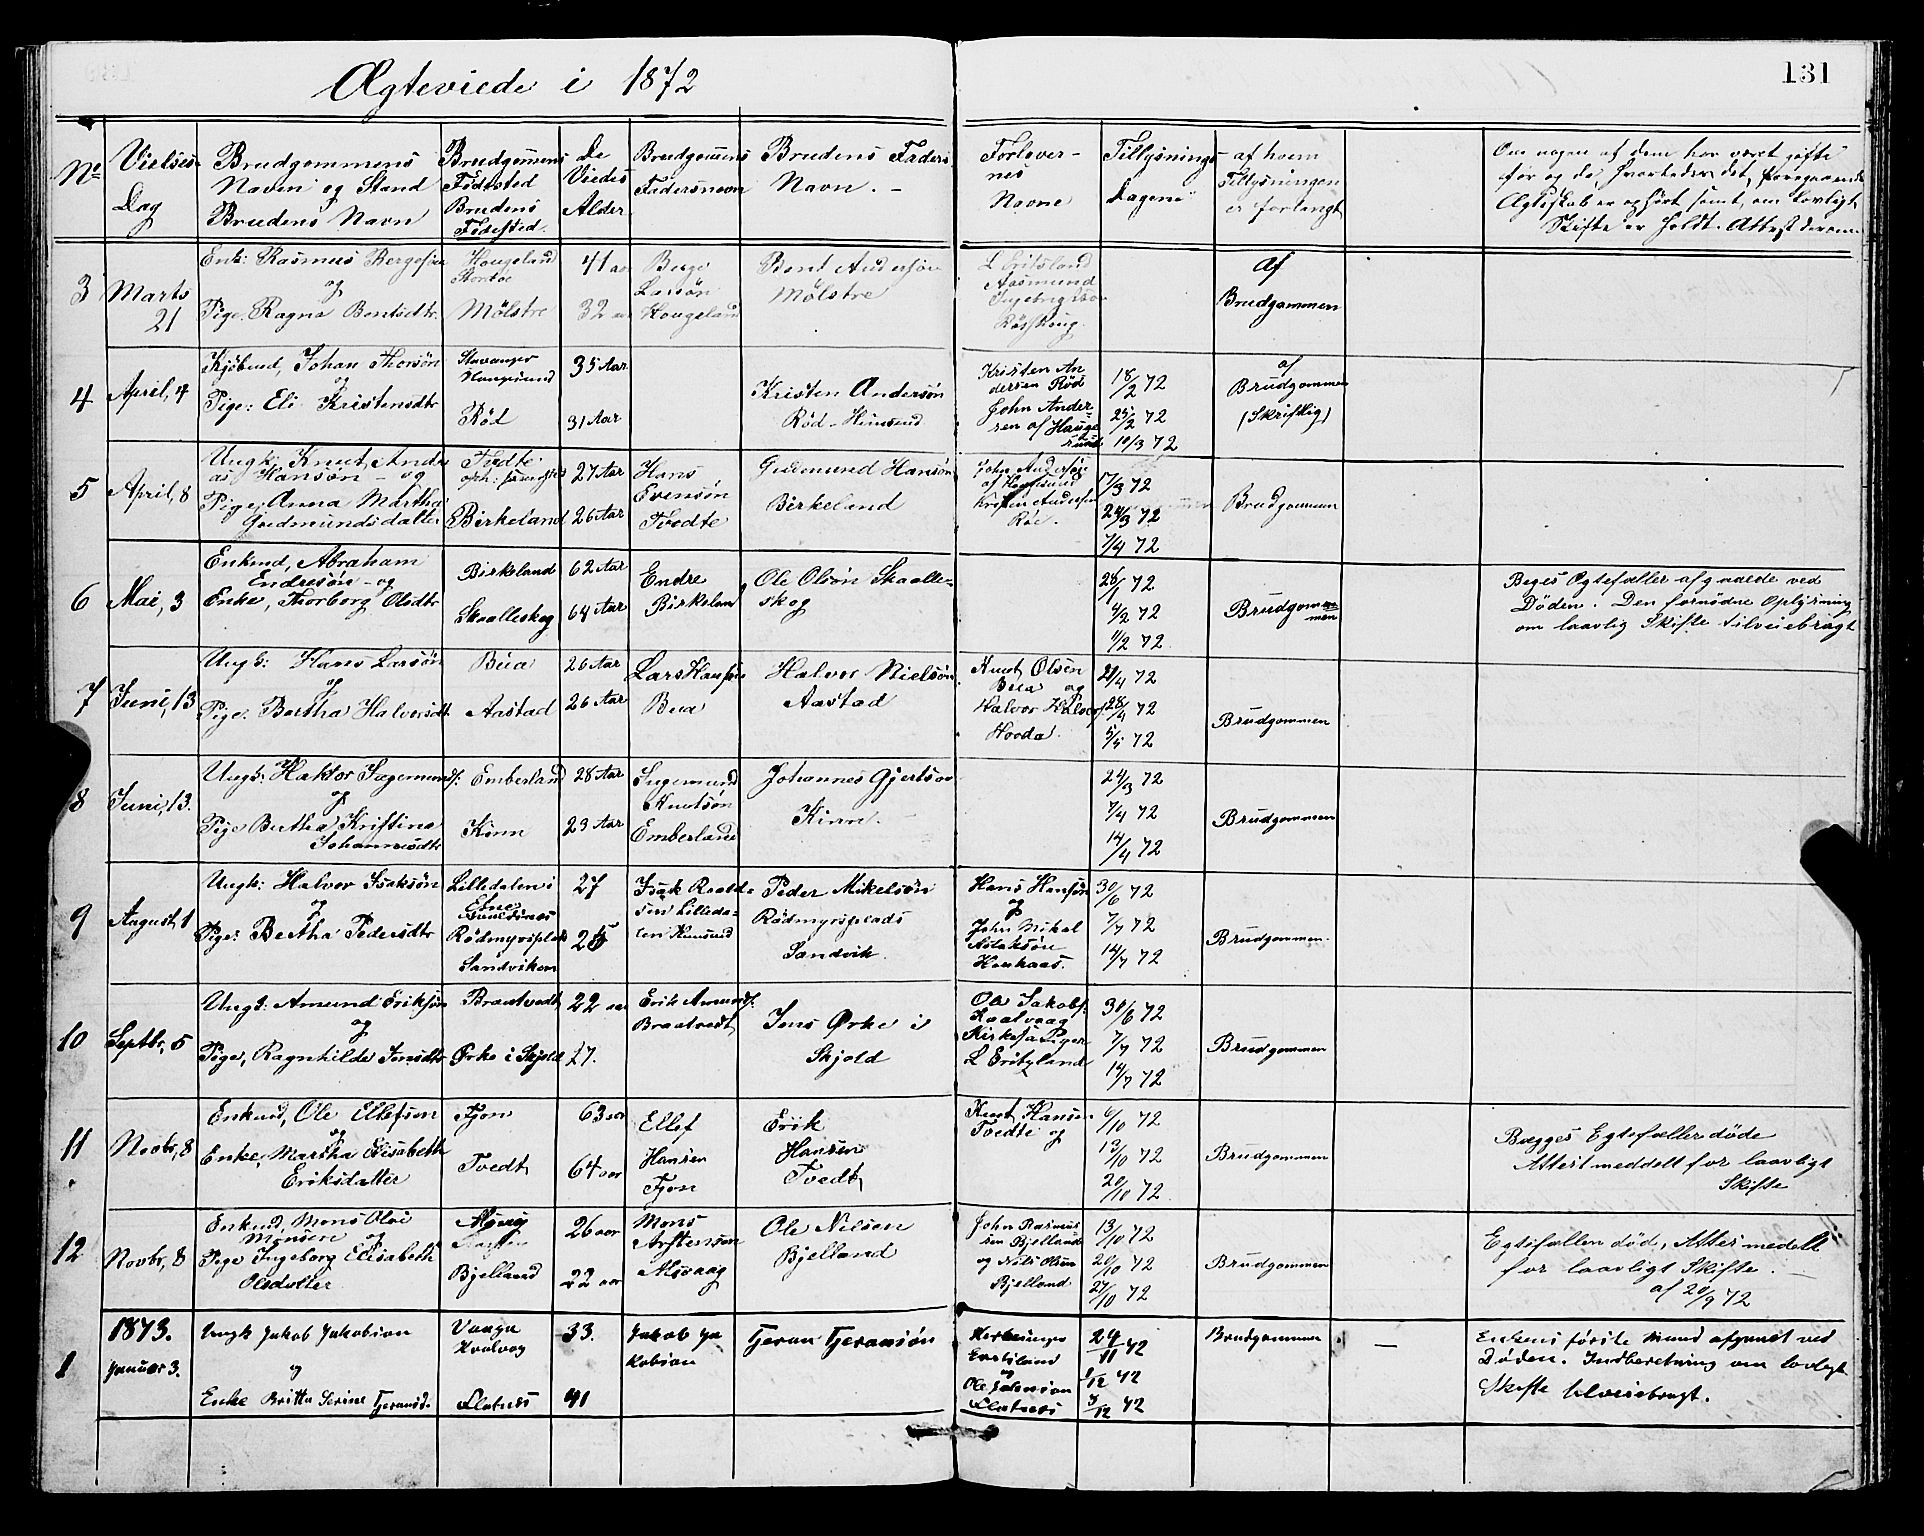 Ægteviede i 1872
131
No
Vielses Dag
Brudgommens Navn og Stand
Brudens Navn
Brudgommens Fødested
Brudens Fødested
De Viedes Alder
Brudgommens Fadersnavn
Brudens Faders Navn. –
Forlover-nes Navne
Tillysnings-Dagene
af hvem Tillysningen er forlangt
Om nogen af dem har været gifte
før og da, hvorledes det foregaaende
Ægteskab er ophørt samt, om lovligt
Skifte er holdt. Attest derom
3
Marts 21
Enk: Rasmus Bergesøn
og
Pige. Ragna Bentsdtr.
Hougeland
Mølstre
41 aar
32 aar
Berge
Larsøn
Hougeland
Bent Andersøn
Mølstre
L Eritsland
Aasmund
af
Brudgommen
4
April, 4
Kjøbmd, Johan Thorsøn
og
Pige: Eli Kristensdtr
Stavanger
Haugesund
Rød
35 Aar
31 Aar
Kristen Andersøn
Rød
Kristen An
dersen Rød
John Ander-
sen af Hauge
sund
18/2 72
25/2 72
10/3 72
af
Brudgommen
(Skriftlig)
5
April, 8
Ungk: Knut Andre
as Hansøn – og
Pige: Anna Martha
Gudmundsdatter
Tvedte
Birkeland
27 Aar
26 Aar
Hans
Evensøn
Tvedte
Gudmund Hansøn
Birkeland
John Andersøn
af Haugesund
Kristen Andersen
Røe.
17/3 72
24/3 72
7/4 72
Brudgommen
6
Mai, 3
Enkmd, Abraham
Endresøn – og
Enke, Thorborg Olsdtr
Birkeland
Skaalleskog
62 Aar
64 Aar
Endre
Birkeland
Ole Olsøn Skaalle-
skog
28/1 72
4/2 72
11/2 72
Brudgommen
Beges Ægtefæller afgaaede ved
Døden. Den fornødne Oplysning
om laavlig Skifte tilveiebragt
7
Juni, 13
Ungk: Hans Larsøn
og
Pige: Bertha Halvorsdt
Bua
Aastad
26 Aar
26 Aar
Lars Hansen
Bua
Halvor Nielsøn
Aastad
Knut Olsen
Bua og
Halvor Halvors.
Hovda.
21/4 72
28/4 72
5/5 72
Brudgommen
8
Juni, 13.
Ungk: Haktor Ingemunds.
og
Pige Bertha Kristina
Johannesdtr
Emberland
Kinn
28 Aar
23 Aar
Ingemund
Knutsøn
Emberland
Johannes Gjertson
Kinn.
24/3 72
7/4 72
14/4 72
Brudgommen
9
August, 1
Ungk: Halvor Isaksøn
og
Pige: Bertha Pedersdtr
Lilledalen i
Etne
Rødmyrsplads
Sandviken
27
25
Isak
Lilleda-
len
Peder Mikelsøn
Rødmyrsplads
Sandvik.
Hans Hansøn
og
John Mikal
30/6 72
7/7 72
14/7 72
Brudgommen.
10
Septbr, 5
Ungk: Amund Eriksøn
og
Pige, Ragnhilde Jensdtr
Braatvedt
Ørke i Skjold
22 aar
27.
Erik Amunds.
Braatvedt
Jens Ørke i
Skjold
Ola Jakobs.
Kirkesanger
L Eritzland
30/6 72
7/7 72
14/7 72
Brudgommen
11
Novbr, 8
Enkmd, Ole Ellefsen
og
Enke, Martha Elisabeth
Eriksdatter
Fjon
Tvedt
63 aar
64 aar
Ellef
Hansen
Fjon
Erik
Hansen
Tvedt
Knut Hansen
Tvedte og
6/10 72
13/10 72
20/10 72
Brudgommen
Bægges Egtefæller døde
Attest meddelt for laavligt
Skifte
12
Novbr, 8
Enkmd, Mons Olai
Monsen og
Pige Ingeborg Elisabeth
Olsdatter
Bjelland
26 aar
22 aar
Mons
Alsvaag
Ole Nelsen
Bjelland
John Rasmus
sen Bjelland
og Nils Olsen
Bjelland
13/10 72
20/10 72
27/10 72
Brudgommen
Egtefællen død, Attes medelt
for laavligt Skifte.
af 20/9 72
1
1873.
Januar 3.
Ungk Jakob Jakobsen
og
Enke Britta Serine Tjeransd.
Vaaga
Flatnes
33.
41
Jakob Ja
kobsen
Tjeran Tjeransøn
Kirkesanger
Eritsland
og
Flatness
24/11 72
1/12 72
8/12 72
Brudgommen
—
Enkens første Mand afgaaet ved
Døden. Indberetning om lovligt
Skifte tilveiebragt.